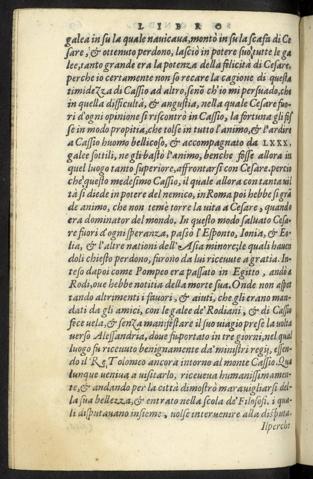 LIBRO
galea in su la quale nauicaua, montò in su la scafa di Ce
sare, & ottenuto perdono, lasciò in potere suo, tutte le ga
lee, tanto grande era la potenza della filicità di Cesare,
perche io certamente non so recare la cagione di questa
timidezza di Cassio ad altro, senō ch'io mi persuado, che
in quella difficultà, & angustia, nella quale Cesare fuo-
ri d'ogni opinione si riscontrò in Cassio, la fortuna gli fos
se in modo propitia, che tolse in tutto l'animo, & l'ardire
a Cassio huomo bellicoso, & accompagnato da LXXX.
galee sottili, ne gli bastò l'animo, benche fosse allora in
quel luogo tanto superiore, affrontarsi con Cesare, percio
che questo medesimo Cassio, il quale allora con tanta uil
tà si diede in potere del nemico, in Roma poi hebbe si grā
de animo, che non temè torre la uita a Cesare, quando
era dominator del mondo. In questo modo saluato Cesa-
re fuori d'ogni speranza, passò l'Esponto, Ionia, & Eo-
lia, & l'altre nationi dell'Asia minore; le quali hauen
doli chiesto perdono, furono da lui riceuute a gratia. In-
teso dapoi come Pompeo era passato in Egitto, andò a
Rodi, oue hebbe notitia della morte sua. Onde non aspet
tando altrimenti i fauori, & aiuti, che gli erano man-
dati da gli amici, con le galee de' Rodiani, & di Cassio
fece uela, & senza manifestare il suo uiagio prese la uolta
uerso Alessandria, doue fu portato in tre giorni, nel qual
luogo fu riceuuto benignamente da' ministri regij, essen-
do il Re Tolomeo ancora intorno al monte Cassio. Qua
lunque ueniua a uisitarlo, riceueua humanissimamen-
te, & andando per la città dimostrò marauigliarsi del-
la sua bellezza, & entrato nella scola de' Filosofi, i qua-
li disputauano insieme, uolse interuenire alla disputa.
Ilperche